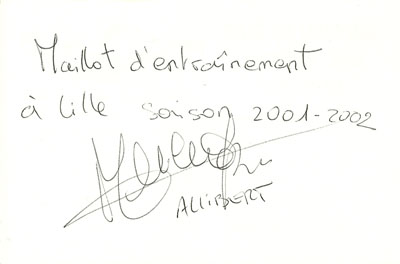 Maillot d'entraînement
à Lille saison 2001-2002
ALLIBERT